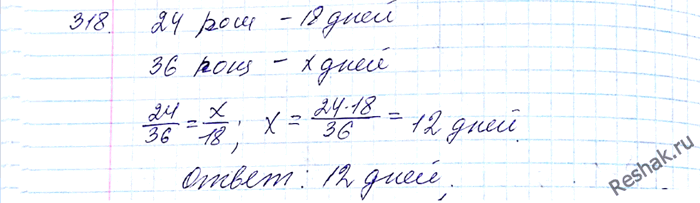 318. 24 рощ - 18 дней
36 рощ - x дней
24/36 = x/18; x = 24·18/36 = 12 дней.
Ответ: 12 дней.
Reshak.ru